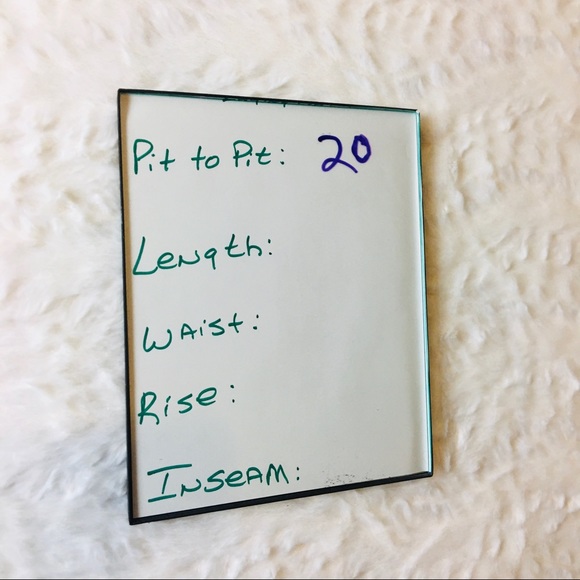 Pit to Pit: 20
Length:
Waist:
Rise:
Inseam: